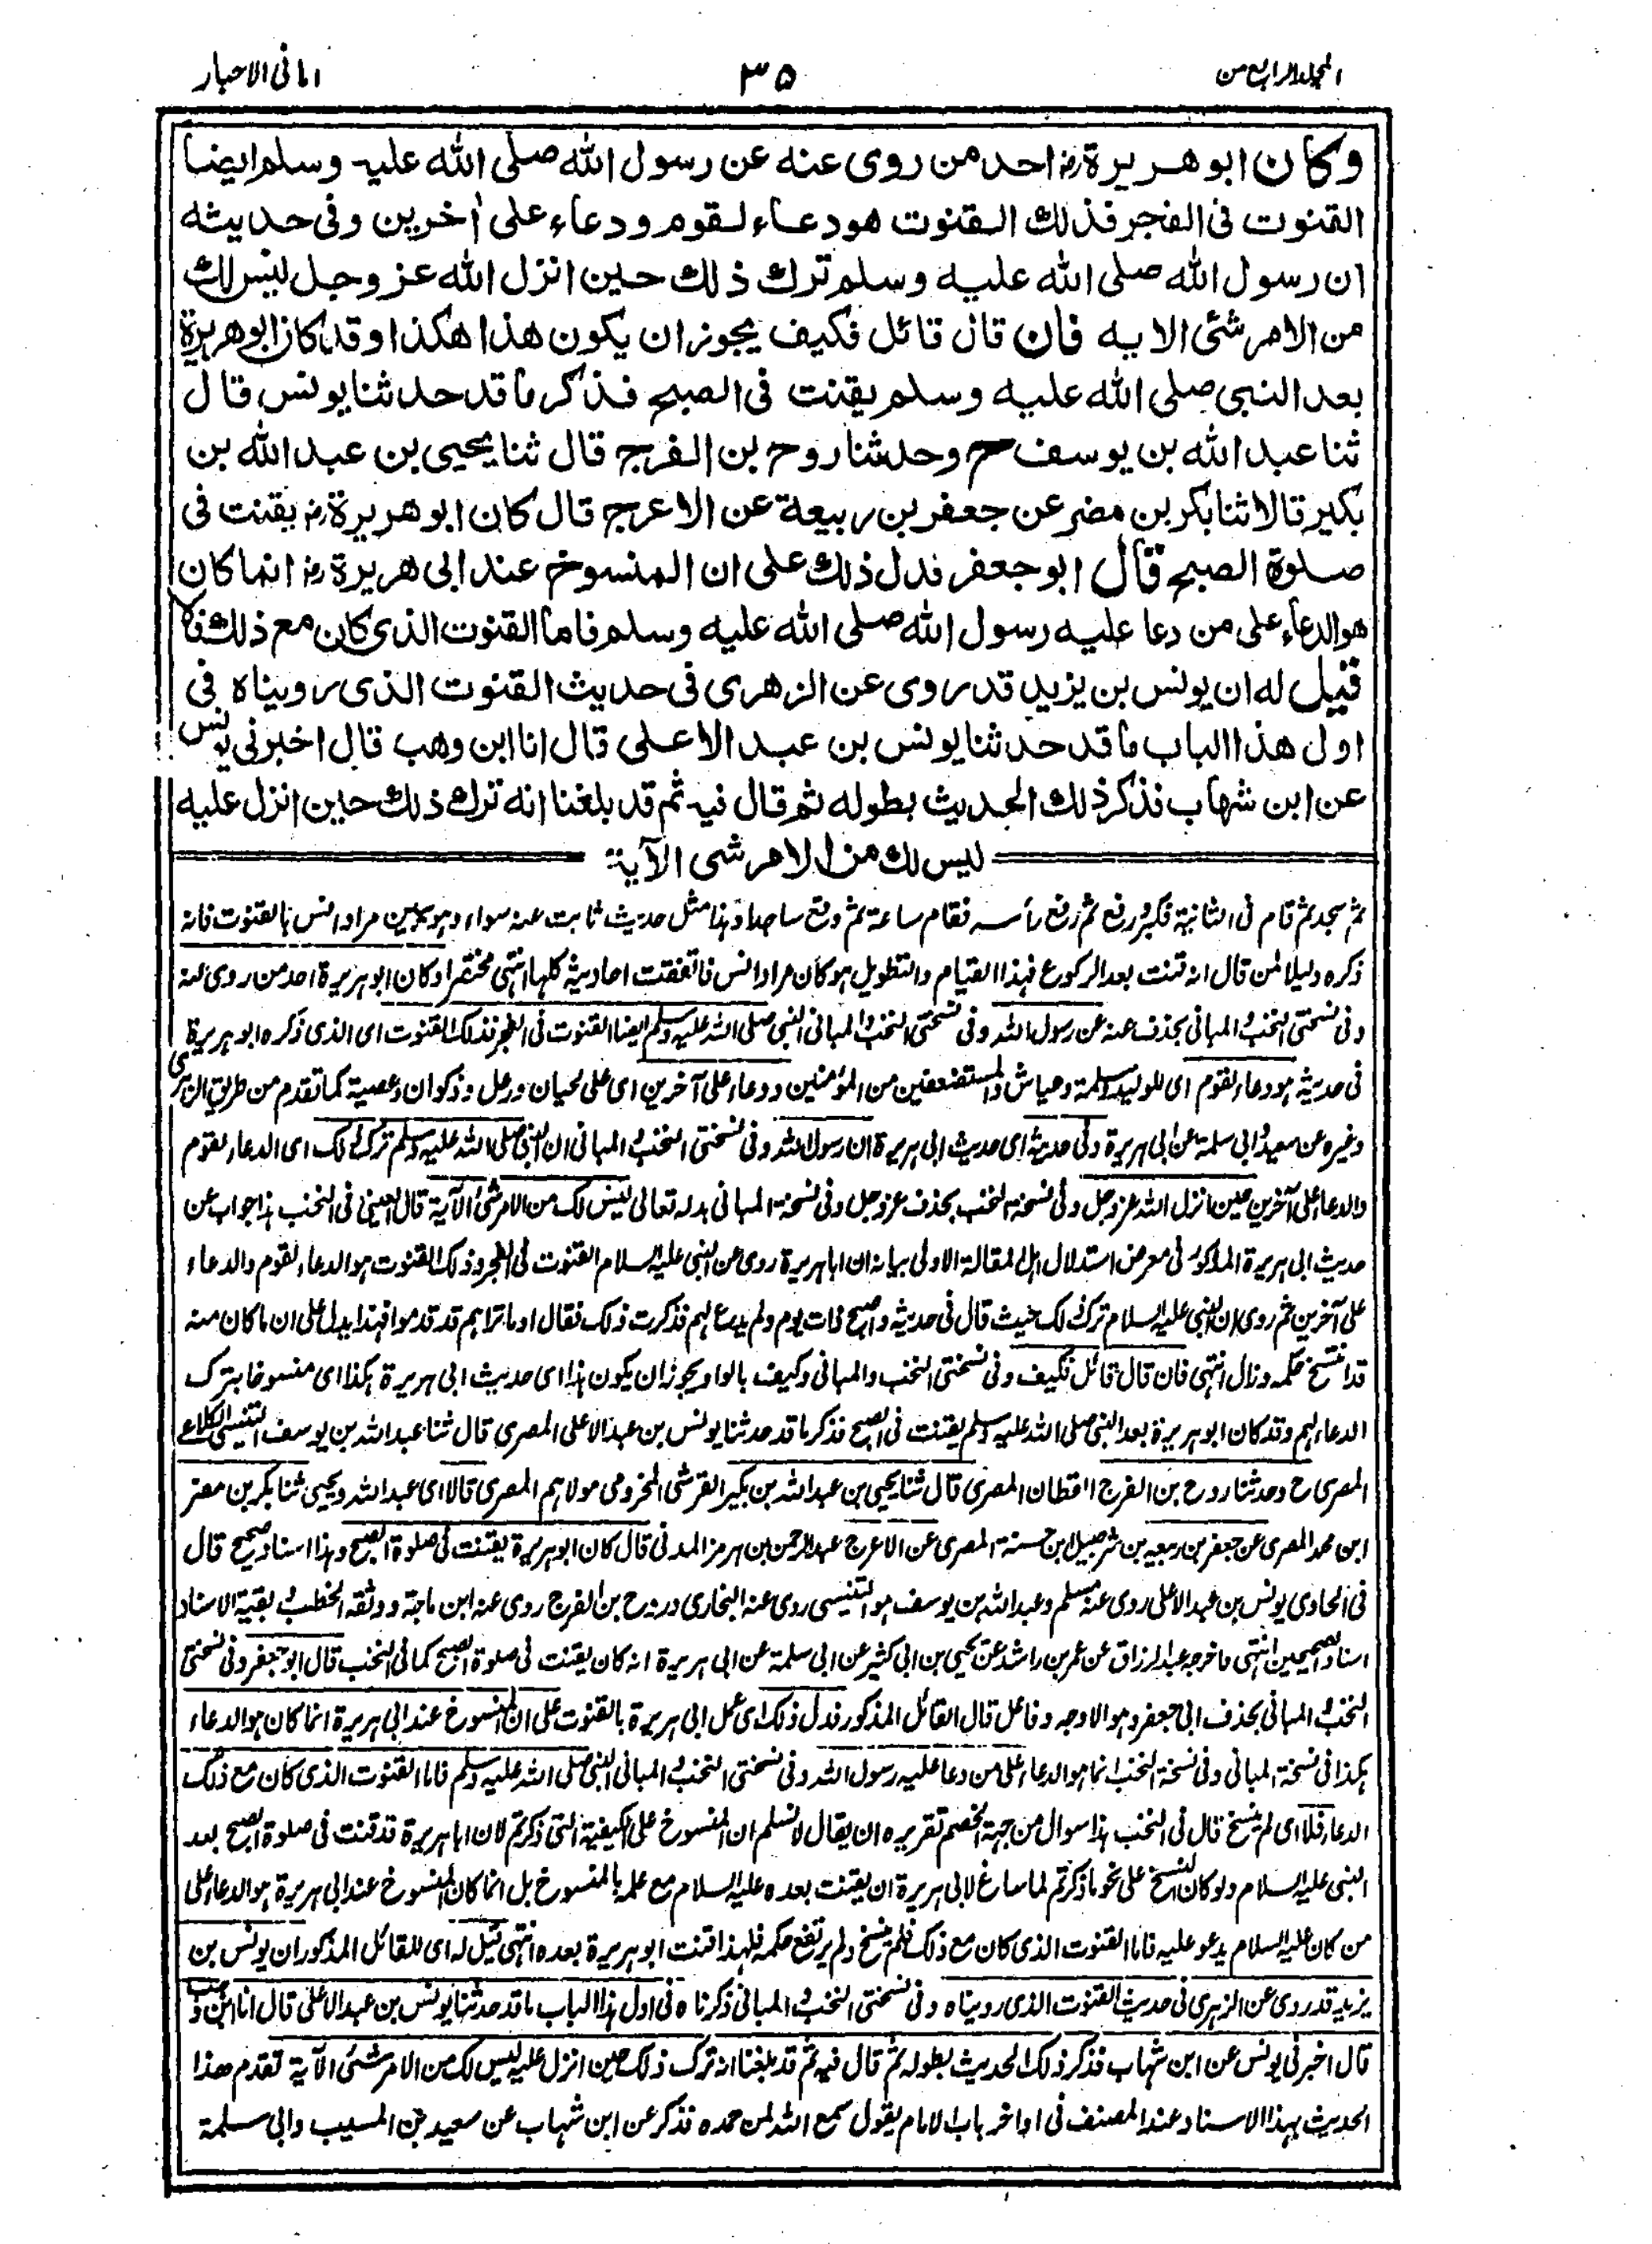 المجلد الرابع من
٣٥
امانى الاحبار
وكان ابو هريرة رض احد من روى عنه عن رسول الله صلى الله عليه وسلم ايضا
القنوت فى الفجر فذلك القنوت هو دعاء لقوم ودعاء على أخرين وفى حديثه
ان رسول الله صلى الله عليه وسلم ترك ذلك حين انزل الله عز وجل ليس لك
من الامر شئى الايه فان قال قائل فكيف يجوز ان يكون هذا هكذا وقد كان ابو هريرة
بعد النبى صلى الله عليه وسلم يقنت فى الصبح فذكر ما قد حدثنا يونس قال
ثنا عبد الله بن يوسف ح وحدثنا روح بن الفرج قال ثنا يحيى بن عبد الله بن
بكير قالا ثنا بكر بن مضر عن جعفر بن ربيعة عن الاعرج قال كان ابو هريرة رض يقنت فى
صلوة الصبح قال ابو جعفر فدل ذلك على ان المنسوخ عند ابى هريرة رض انما كان
هو الدعاء على من دعا عليه رسول الله صلى الله عليه وسلم فاما القنوت الذى كان مع ذلك فلا
قيل له ان يونس بن يزيد قد روى عن الزهرى فى حديث القنوت الذى رويناه فى
اول هذا الباب ما قد حدثنا يونس بن عبد الاعلى قال انا ابن وهب قال اخبرنى يونس
عن ابن شهاب فذكر ذلك الحديث بطوله ثم قال فيه ثم قد بلغنا انه ترك ذلك حين انزل عليه
ليس لك من الامر شى الآية
ثم سجد ثم قام فى الثانية فكبر وركع ثم رفع رأسه فقام ساعة ثم وقع ساجدا وهذا مثل حديث ثابت عنه سواء وهو يبين مراد انس بالقنوت فانه
ذكره دليلا لمن قال انه قنت بعد الركوع فهذا القيام والتطويل هو كان مراد انس فاتفقت احاديثه كلها انتهى مختصرا وكان ابو هريرة احد من روى عنه
وفى نسختى النخب والمبانى بحذف عنه عن رسول الله وفى نسختى النخب والمبانى النبى صلى الله عليه وسلم ايضا القنوت فى الفجر فذلك القنوت اى الذى ذكره ابو هريرة
فى حديثه هو دعاء لقوم اى للوليد وسلمة وعياش والمستضعفين من المؤمنين ودعاء على آخرين اى على لحيان ورعل وذكوان وعصية كما تقدم من طريق الزهرى
وغيره عن سعيد وابى سلمة عن ابى هريرة وفى حديثه اى حديث ابى هريرة ان رسول الله وفى نسختى النخب والمبانى ان النبى صلى الله عليه وسلم ترك ذلك اى الدعاء لقوم
والدعاء على آخرين حين انزل الله عز وجل وفى نسخة النخب بحذف عز وجل وفى نسخة المبانى بدله تعالى ليس لك من الامر شئ الآية قال العينى فى النخب هذا جواب عن
حديث ابى هريرة المذكور فى معرض استدلال اهل المقالة الاولى بيانه ان ابا هريرة روى عن النبى عليه السلام القنوت فى الفجر وذلك القنوت هو الدعاء لقوم والدعاء
على آخرين ثم روى ان النبى عليه السلام ترك ذلك حيث قال فى حديثه واصبح ذات يوم ولم يدع لهم فذكرت ذلك فقال او ما تراهم قد قدموا فهذا يدل على ان ما كان منه
قد انتسخ حكمه وزال انتهى فان قال قائل فكيف وفى نسختى النخب والمبانى وكيف بالواو يجوز ان يكون هذا اى حديث ابى هريرة هكذا اى منسوخا بترك
الدعاء لهم وقد كان ابو هريرة بعد النبى صلى الله عليه وسلم يقنت فى الصبح فذكر ما قد حدثنا يونس بن عبد الاعلى المصرى قال ثنا عبد الله بن يوسف التنيسى الكلاعى
المصرى ح وحدثنا روح بن الفرج القطان المصرى قال ثنا يحيى بن عبد الله بن بكير القرشى المخزومى مولاهم المصرى قالا اى عبد الله ويحيى ثنا بكر بن مضر
ابن محمد المصرى عن جعفر بن ربيعه بن شرحبيل ابن حسنة المصرى عن الاعرج عبد الرحمن بن هرمز المدنى قال كان ابو هريرة يقنت فى صلوة الصبح وهذا اسناد صحيح قال
فى الحاوى يونس بن عبد الاعلى روى عنه مسلم وعبد الله بن يوسف هو التنيسى روى عنه البخارى وروح بن الفرج روى عنه ابن ماجة ووثقه الخطيب وبقية الاسناد
اسناد الصحيحين انتهى واخرجه عبد الرزاق عن عمر بن راشد عن يحيى بن ابى كثير عن ابى سلمة عن ابى هريرة انه كان يقنت فى صلوة الصبح كما فى النخب قال ابو جعفر وفى نسختى
النخب والمبانى بحذف ابى جعفر وهو الاوجه وفاعل قال القائل المذكور فدل ذلك اى عمل ابى هريرة بالقنوت على ان المنسوخ عند ابى هريرة انما كان هو الدعاء
هكذا فى نسخة المبانى وفى نسخة النخب انما هو الدعاء على من دعا عليه رسول الله وفى نسختى النخب والمبانى النبى صلى الله عليه وسلم فاما القنوت الذى كان مع ذلك
الدعاء فلا اى لم ينسخ قال فى النخب هذا سوال من جهة الخصم تقريره ان يقال لا نسلم ان المنسوخ على الكيفية التى ذكرتم لان ابا هريرة قد قنت فى صلوة الصبح بعد
النبى عليه السلام ولو كان النسخ على نحو ما ذكرتم لما ساغ لابى هريرة ان يقنت بعده عليه السلام مع علمه بالمنسوخ بل انما كان المنسوخ عند ابى هريرة هو الدعاء على
من كان عليه السلام يدعو عليه فاما القنوت الذى كان مع ذلك فلم ينسخ ولم يرتفع حكمه فلهذا قنت ابو هريرة بعده انتهى قيل له اى للقائل المذكور ان يونس بن
يزيد قد روى عن الزهرى فى حديث القنوت الذى رويناه وفى نسختى النخب والمبانى ذكرناه فى اول هذا الباب ما قد حدثنا يونس بن عبد الاعلى قال انا ابن وهب
قال اخبرنى يونس عن ابن شهاب فذكر ذلك الحديث بطوله ثم قال فيه ثم قد بلغنا انه ترك ذلك حين انزل عليه ليس لك من الامر شئى الآية تقدم هذا
الحديث بهذا الاسناد عند المصنف فى اواخر باب الامام يقول سمع الله لمن حمده فذكر عن ابن شهاب عن سعيد بن المسيب وابى سلمة